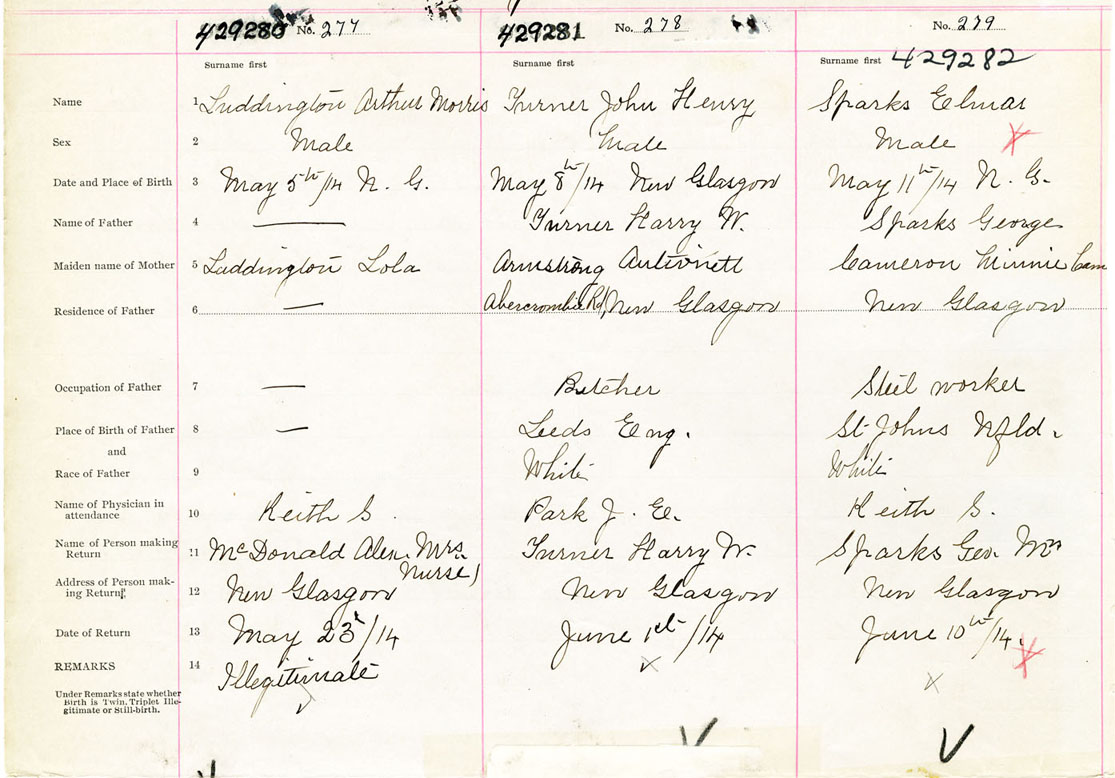 429280 No. 277 429281 No. 278 No. 279
Surname first Surname first Surname first 429282
Name 1 Luddington Arthur Morris Turner John Henry Sparks Elmar
Sex 2 Male Male Male
Date and Place of Birth 3 May 5th/14 N. G. May 8th/14 New Glasgow May 11th/14 N. G.
Name of Father 4 — Turner Harry W. Sparks George
Maiden name of Mother 5 Luddington Lola Armstrong Cameron Minnie Cam
Residence of Father 6 — Abercrombie Rd, New Glasgow New Glasgow
Occupation of Father 7 — Butcher Steel worker
Place of Birth of Father 8 — Leeds Eng. St Johns Nfld.
and
Race of Father 9 White White
Name of Physician in
attendance 10 Keith S. Park J. E. Keith S.
Name of Person making
Return 11 McDonald Alex. Mrs. Turner Harry W. Sparks Geo. Mrs
Nurse)
Address of Person mak-
ing Return 12 New Glasgow New Glasgow New Glasgow
Date of Return 13 May 23/14 June 1st/14 June 10th/14.
REMARKS 14 Illegitimate
Under Remarks state whether
Birth is Twin, Triplet Ille-
gitimate or Still-birth.